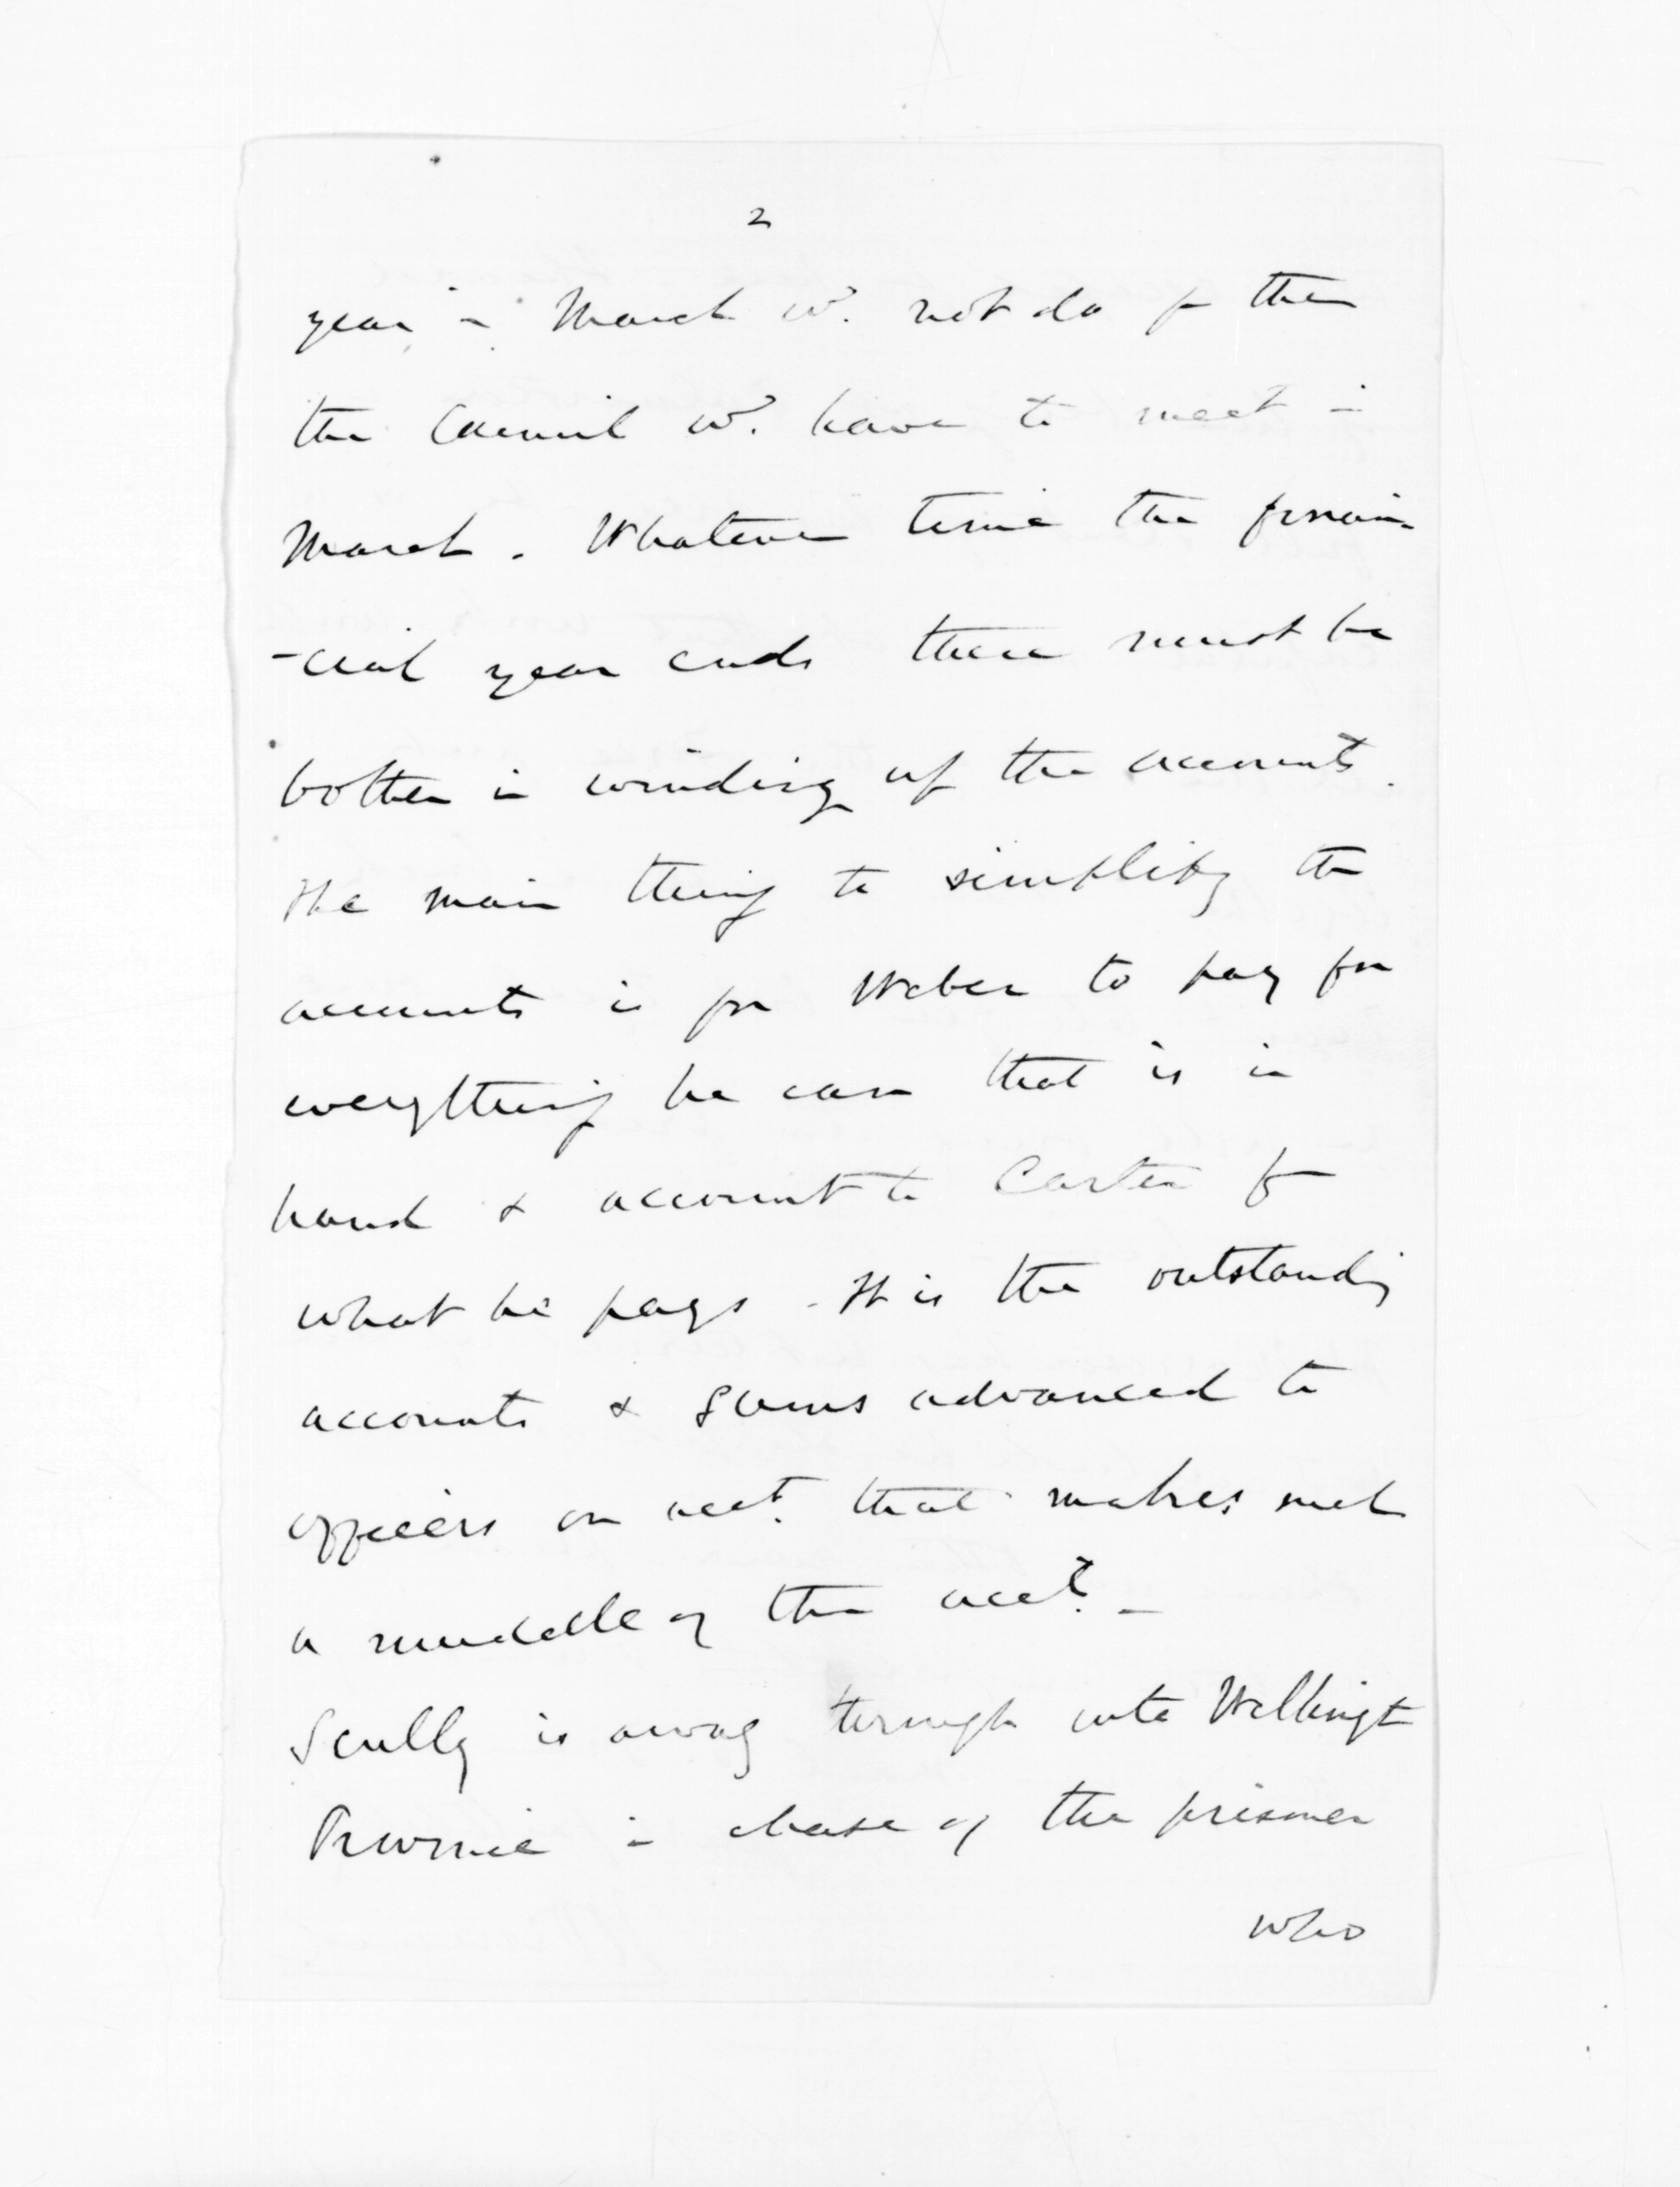 2
year in March wd. not do for then
the Council wd. have to meet in
March. Whatever time the finan-
-cial year ends there must be
bother in winding up the accounts.
The main thing to simplify the
accounts is for Weber to pay for
everything he can that is in
hand & account to Carter for
what he pays - It is the outstanding
accounts & sums advanced to
officers on acct. that makes such
a muddle of the acct. -
Scully is away through into Wellingt
Province in chase of the prisoner
who